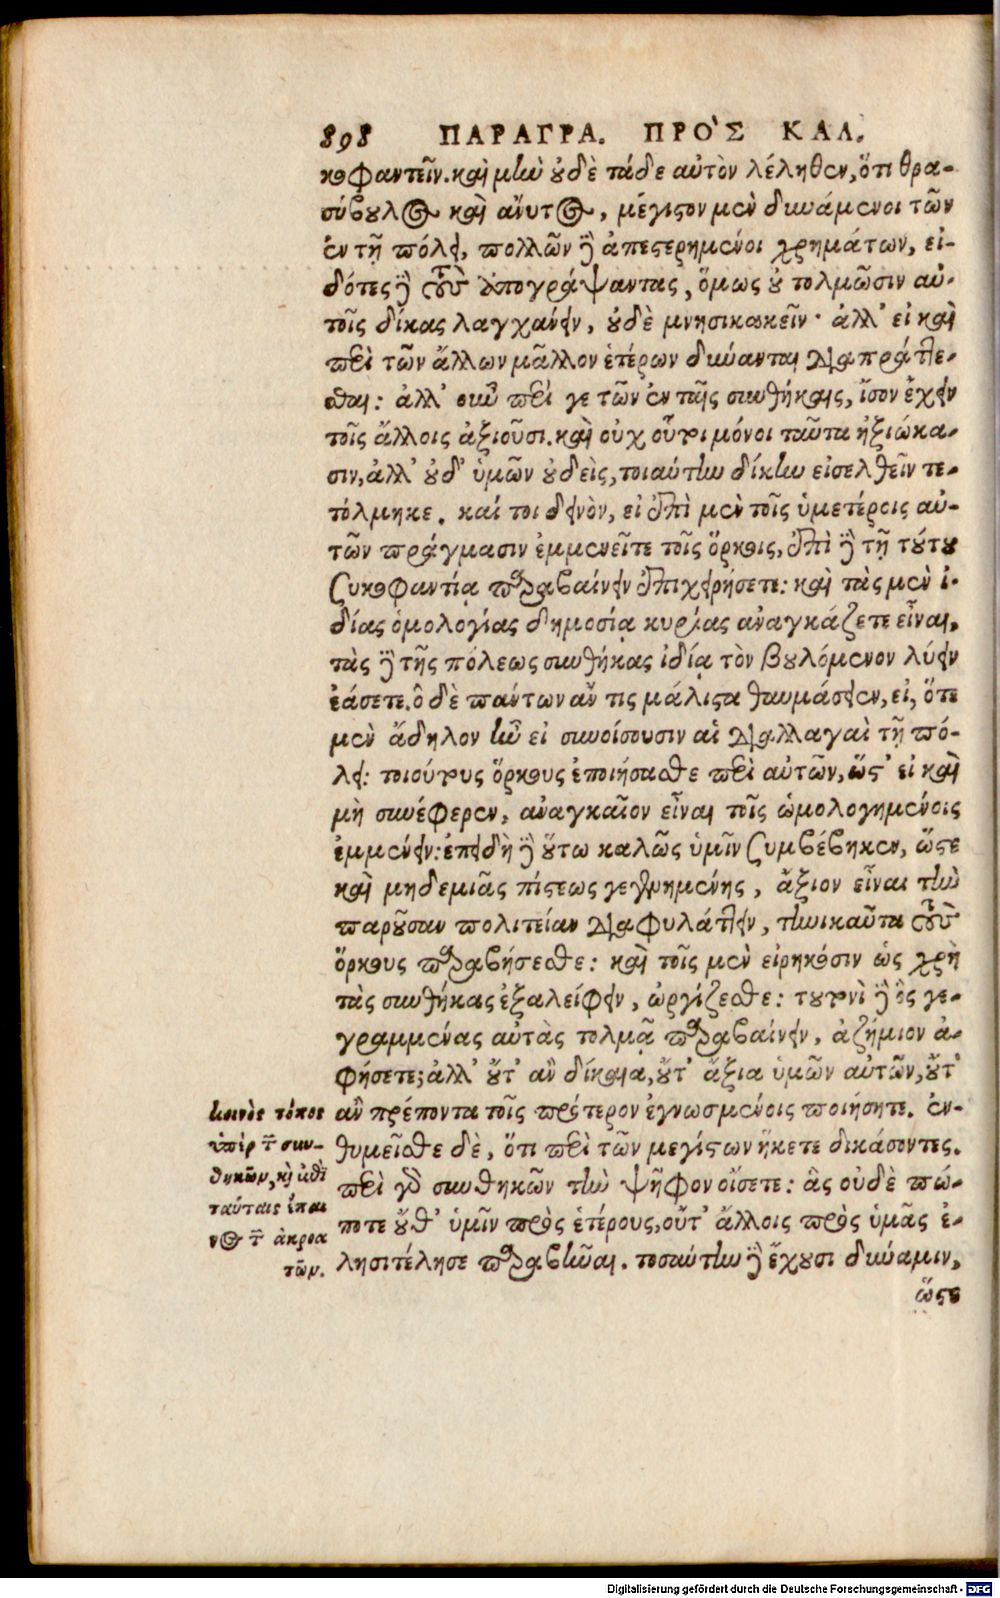 898 ΠΑΡΑΓΡΑ. ΠΡῸΣ ΚΑΛ.
κοφαντεῖν. καὶ μὴν οὐδὲ τάδε αὐτὸν λέληθεν, ὅτι θρα-
σύβουλος καὶ ἄνυτος, μέγιστον μὲν δυνάμενοι τῶν
ἐν τῇ πόλει, πολλῶν δὲ ἀπεστερημένοι χρημάτων, εἰ-
δότες δὲ τοὺς ἀπογράψαντας, ὅμως οὐ τολμῶσιν αὐ-
τοῖς δίκας λαγχάνειν, οὐδὲ μνησικακεῖν· ἀλλ' εἰ καὶ
περὶ τῶν ἄλλων μᾶλλον ἑτέρων δύνανται διαπράττε-
σθαι: ἀλλ' οὖν περί γε τῶν ἐν ταῖς συνθήκαις, ἴσον ἔχειν
τοῖς ἄλλοις ἀξιοῦσι. καὶ οὐχ οὗτοι μόνοι ταῦτα ἠξιώκα-
σιν, ἀλλ' οὐδ' ὑμῶν οὐδεὶς, τοιαύτην δίκην εἰσελθεῖν τε-
τόλμηκε. καί τοι δεινὸν, εἰ ἐπὶ μὲν τοῖς ὑμετέροις αὐ-
τῶν πράγμασιν ἐμμενεῖτε τοῖς ὅρκοις, ἐπὶ δὲ τῇ τούτου
συκοφαντίᾳ παραβαίνειν ἐπιχειρήσετε: καὶ τὰς μὲν ἰ-
δίας ὁμολογίας δημοσίᾳ κυρίας ἀναγκάζετε εἶναι,
τὰς δὲ τῆς πόλεως συνθήκας ἰδίᾳ τὸν βουλόμενον λύειν
ἐάσετε. ὃ δὲ πάντων ἄν τις μάλιστα θαυμάσειεν, εἰ, ὅτε
μὲν ἄδηλον ἦν εἰ συνοίσουσιν αἱ διαλλαγαὶ τῇ πό-
λει: τοιούτους ὅρκους ἐποιήσασθε περὶ αὐτῶν, ὥστ' εἰ καὶ
μὴ συνέφερεν, ἀναγκαῖον εἶναι τοῖς ὡμολογημένοις
ἐμμένειν: ἐπειδὴ δὲ οὕτω καλῶς ὑμῖν συμβέβηκεν, ὥστε
καὶ μηδεμιᾶς πίστεως γεγενημένης, ἄξιον εἶναι τὴν
παροῦσαν πολιτείαν διαφυλάττειν, τηνικαῦτα τοὺς
ὅρκους παραβήσεσθε: καὶ τοῖς μὲν εἰρηκόσιν ὡς χρὴ
τὰς συνθήκας ἐξαλείφειν, ὠργίζεσθε: τουτονὶ δὲ ὃς γε-
γραμμένας αὐτὰς τολμᾷ παραβαίνειν, ἀζήμιον ἀ-
φήσετε; ἀλλ' οὔτ' ἂν δίκαια, οὔτ' ἄξια ὑμῶν αὐτῶν, οὔτ'
ἂν πρέποντα τοῖς πρότερον ἐγνωσμένοις ποιήσητε. ἐν-
θυμεῖσθε δὲ, ὅτι περὶ τῶν μεγίστων ἥκετε δικάσοντες.
περὶ γὰρ συνθηκῶν τὴν ψῆφον οἴσετε: ἃς οὐδὲ πώ-
ποτε οὔθ' ὑμῖν πρὸς ἑτέρους, οὔτ' ἄλλοις πρὸς ὑμᾶς ἐ-
λησιτέλησε παραβῆναι. τοσαύτην δὲ ἔχουσι δύναμιν,
ὥστε
κοινὸς τόπος
ὑπὲρ τῶν συν-
θηκῶν, καὶ ἐπὶ
ταύταις ἔπαι
νος τῶν ἀκροα
τῶν.
Digitalisierung gefördert durch die Deutsche Forschungsgemeinschaft - DFG